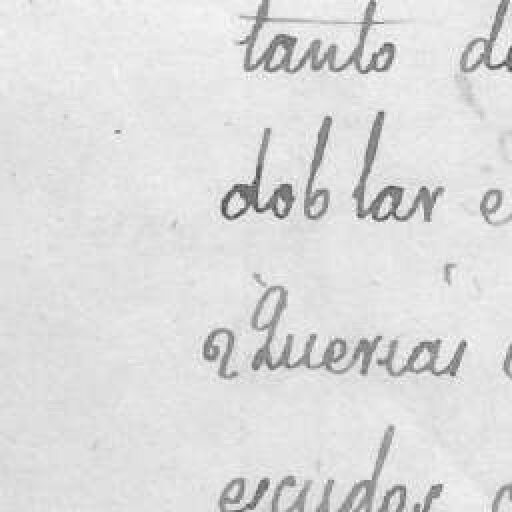 tanto d
doblar e
¿Querias
escudos